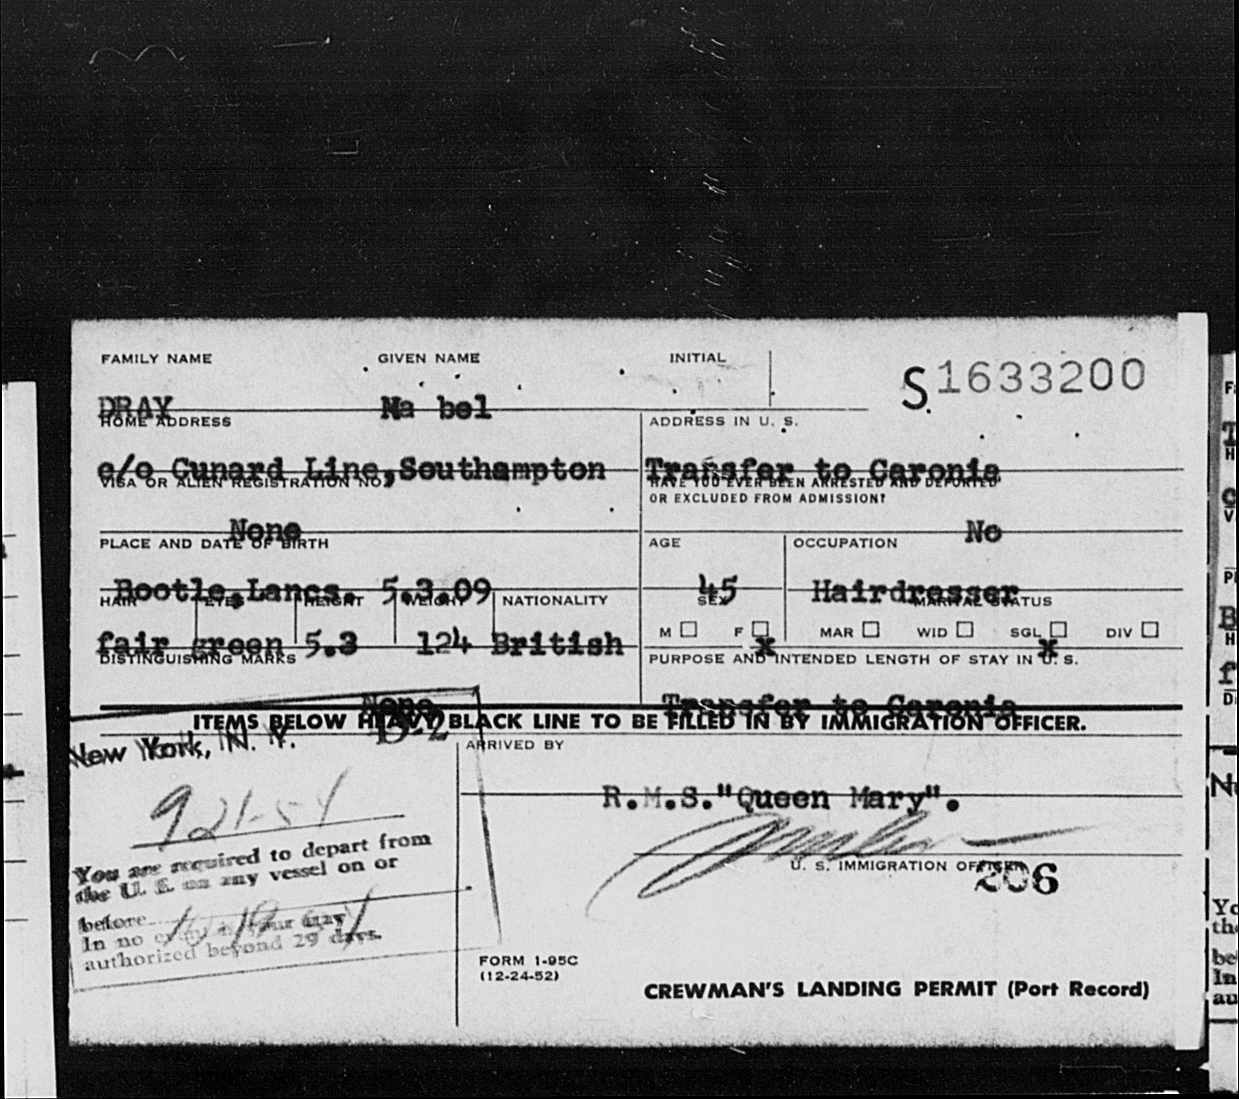 FAMILY NAME GIVEN NAME INITIAL
S 1633200
DRAY Ma bel
HOME ADDRESS ADDRESS IN U. S.
c/o Cunard Line,Southampton Transfer to Caronia
VISA OR ALIEN REGISTRATION NO. HAVE YOU EVER BEEN ARRESTED AND DEPORTED
OR EXCLUDED FROM ADMISSION?
None No
PLACE AND DATE OF BIRTH AGE OCCUPATION
Bootle,Lancs. 5.3.09 45 Hairdresser
HAIR EYES HEIGHT WEIGHT NATIONALITY SEX MARITAL STATUS
M F MAR WID SGL DIV
fair green 5.3 124 British x x
DISTINGUISHING MARKS PURPOSE AND INTENDED LENGTH OF STAY IN U. S.
None Transfer to Caronia
ITEMS BELOW HEAVY BLACK LINE TO BE FILLED IN BY IMMIGRATION OFFICER.
New York, N. Y. D-2 ARRIVED BY
R.M.S."Queen Mary".
9-21-54
U. S. IMMIGRATION OFFICER
206
You are required to depart from
the U. S. on any vessel on or
before
In no event is your stay
authorized beyond 29 days.
FORM 1-95C
(12-24-52)
CREWMAN'S LANDING PERMIT (Port Record)